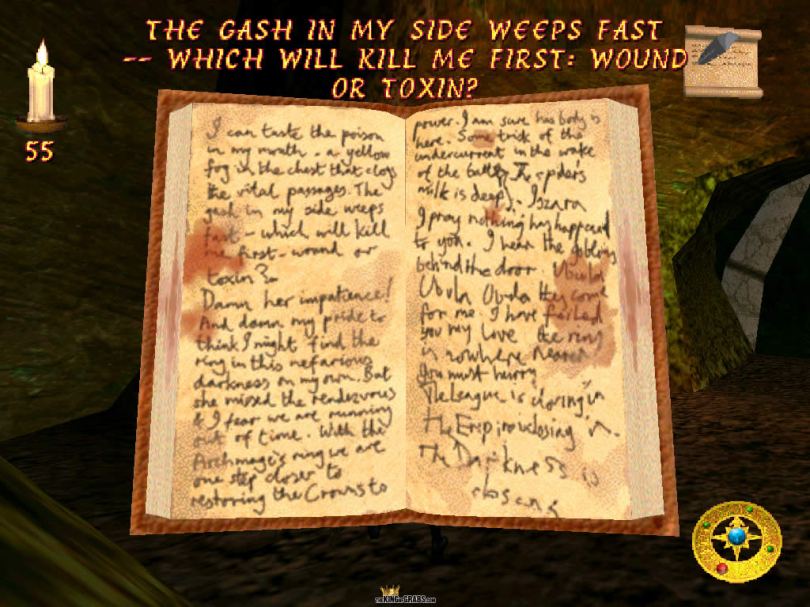 THE GASH IN MY SIDE WEEPS FAST
-- WHICH WILL KILL ME FIRST: WOUND
OR TOXIN?
55
I can taste the poison
in my mouth - a yellow
fog in the chest that clogs
the vital passages. The
gash in my side weeps
fast - which will kill
me first - wound or
toxin?
Damn her impatience!
And damn my pride to
think I might find the
ring in this nefarious
darkness on my own. But
she missed the rendezvous
& I fear we are running
out of time. With the
Archmage's ring we are
one step closer to
restoring the Crowns to
power. I am sure his body is
here. Some trick of the
undercurrent in the wake
of the battle (The spider's
milk is deep). Iszara
I pray nothing has happened
to you. I hear the goblins
behind the door. Ubula
Ubula Ubula they come
for me. I have failed
you my love the ring
is nowhere near
You must hurry
The League is closing in
The Empire closing in.
The Darkness is
THE KING OF GRABS.COM